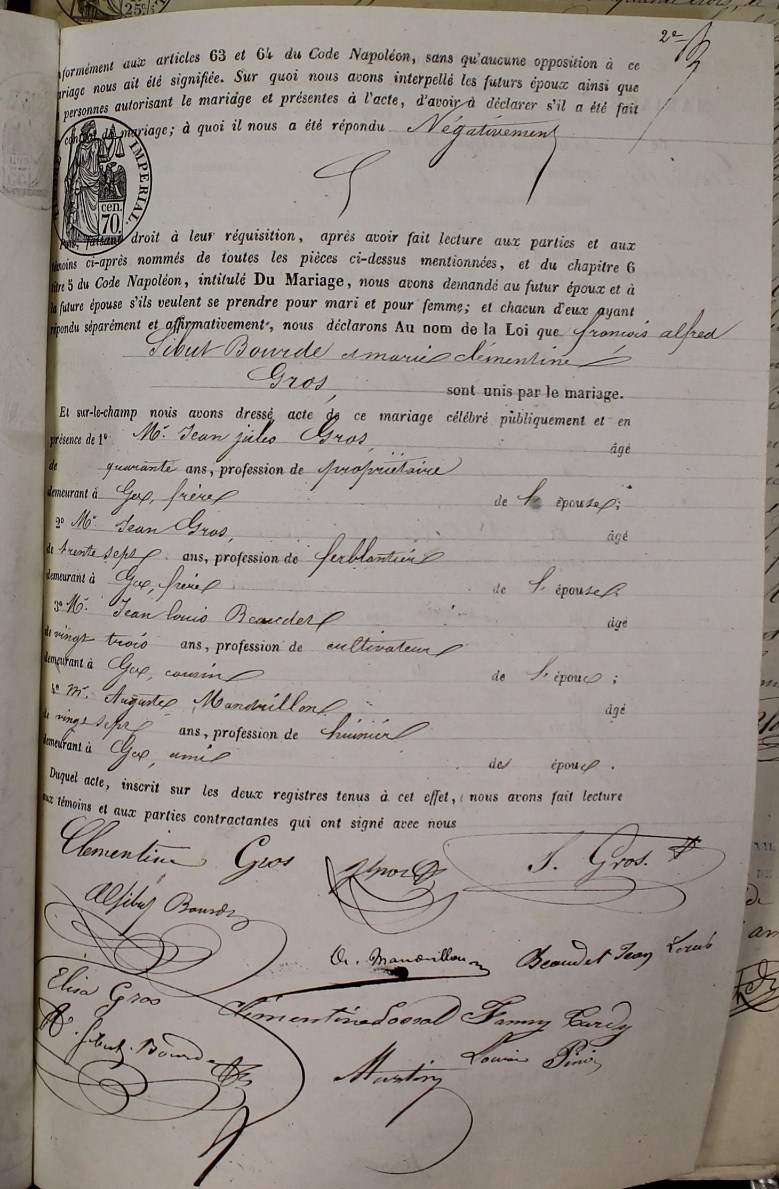 2e
nformément aux articles 63 et 64 du Code Napoléon, sans qu'aucune opposition à ce
ariage nous ait été signifiée. Sur quoi nous avons interpellé les futurs époux ainsi que
personnes autorisant le mariage et présentes à l'acte, d'avoir à déclarer s'il a été fait
mariage; à quoi il nous a été répondu Négativement
IMPERIAL.
cen.
70.
faisant droit à leur réquisition, après avoir fait lecture aux parties et aux
témoins ci-après nommés de toutes les pièces ci-dessus mentionnées, et du chapitre 6
titre 5 du Code Napoléon, intitulé Du Mariage, nous avons demandé au futur époux et à
la future épouse s'ils veulent se prendre pour mari et pour femme; et chacun d'eux ayant
répondu séparément et affirmativement, nous déclarons Au nom de la Loi que françois alfred
Sibut Bourde et marie clémentine
Gros sont unis par le mariage.
Et sur-le-champ nous avons dressé acte de ce mariage célébré publiquement et en
présence de 1o Mr. Jean jules Gros âgé
de quarante ans, profession de propriétaire
demeurant à Gex, frère de l' épouse;
2o Mr Jean Gros, âgé
de trente sept ans, profession de ferblantier
demeurant à Gex, frère de l' épouse
3o Mr. Jean louis Beaudet âgé
de vingt trois ans, profession de cultivateur
demeurant à Gex, cousin de l' époux ;
4o Mr. Auguste Mandrillon âgé
de vingt sept ans, profession de huissier
demeurant à Gex, ami des époux .
Duquel acte, inscrit sur les deux registres tenus à cet effet, nous avons fait lecture
aux témoins et aux parties contractantes qui ont signé avec nous
Clementine Gros J. Gros.
Bourde
A. Mandrillon Beaudet Jean Louis
Elisa Gros Clémentine Fanny
Sibut Bourde Martin Louise